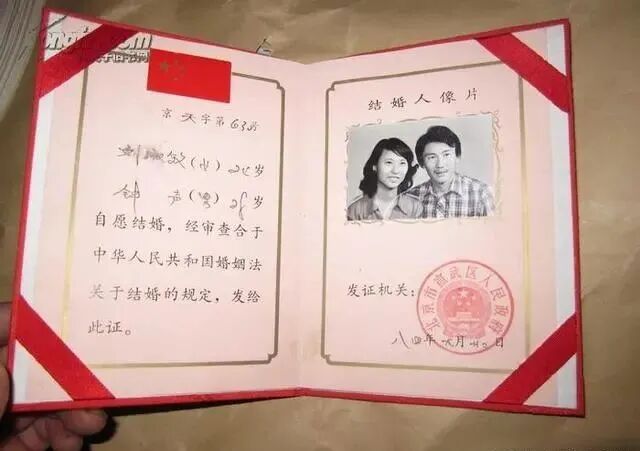 京 天字第63号
敏(女)24岁
钟 声(男)28岁
自愿结婚，经审查合于
中华人民共和国婚姻法
关于结婚的规定，发给
此证。
结婚人像片
发证机关：
北京市宣武区人民政府
八四年 月 日